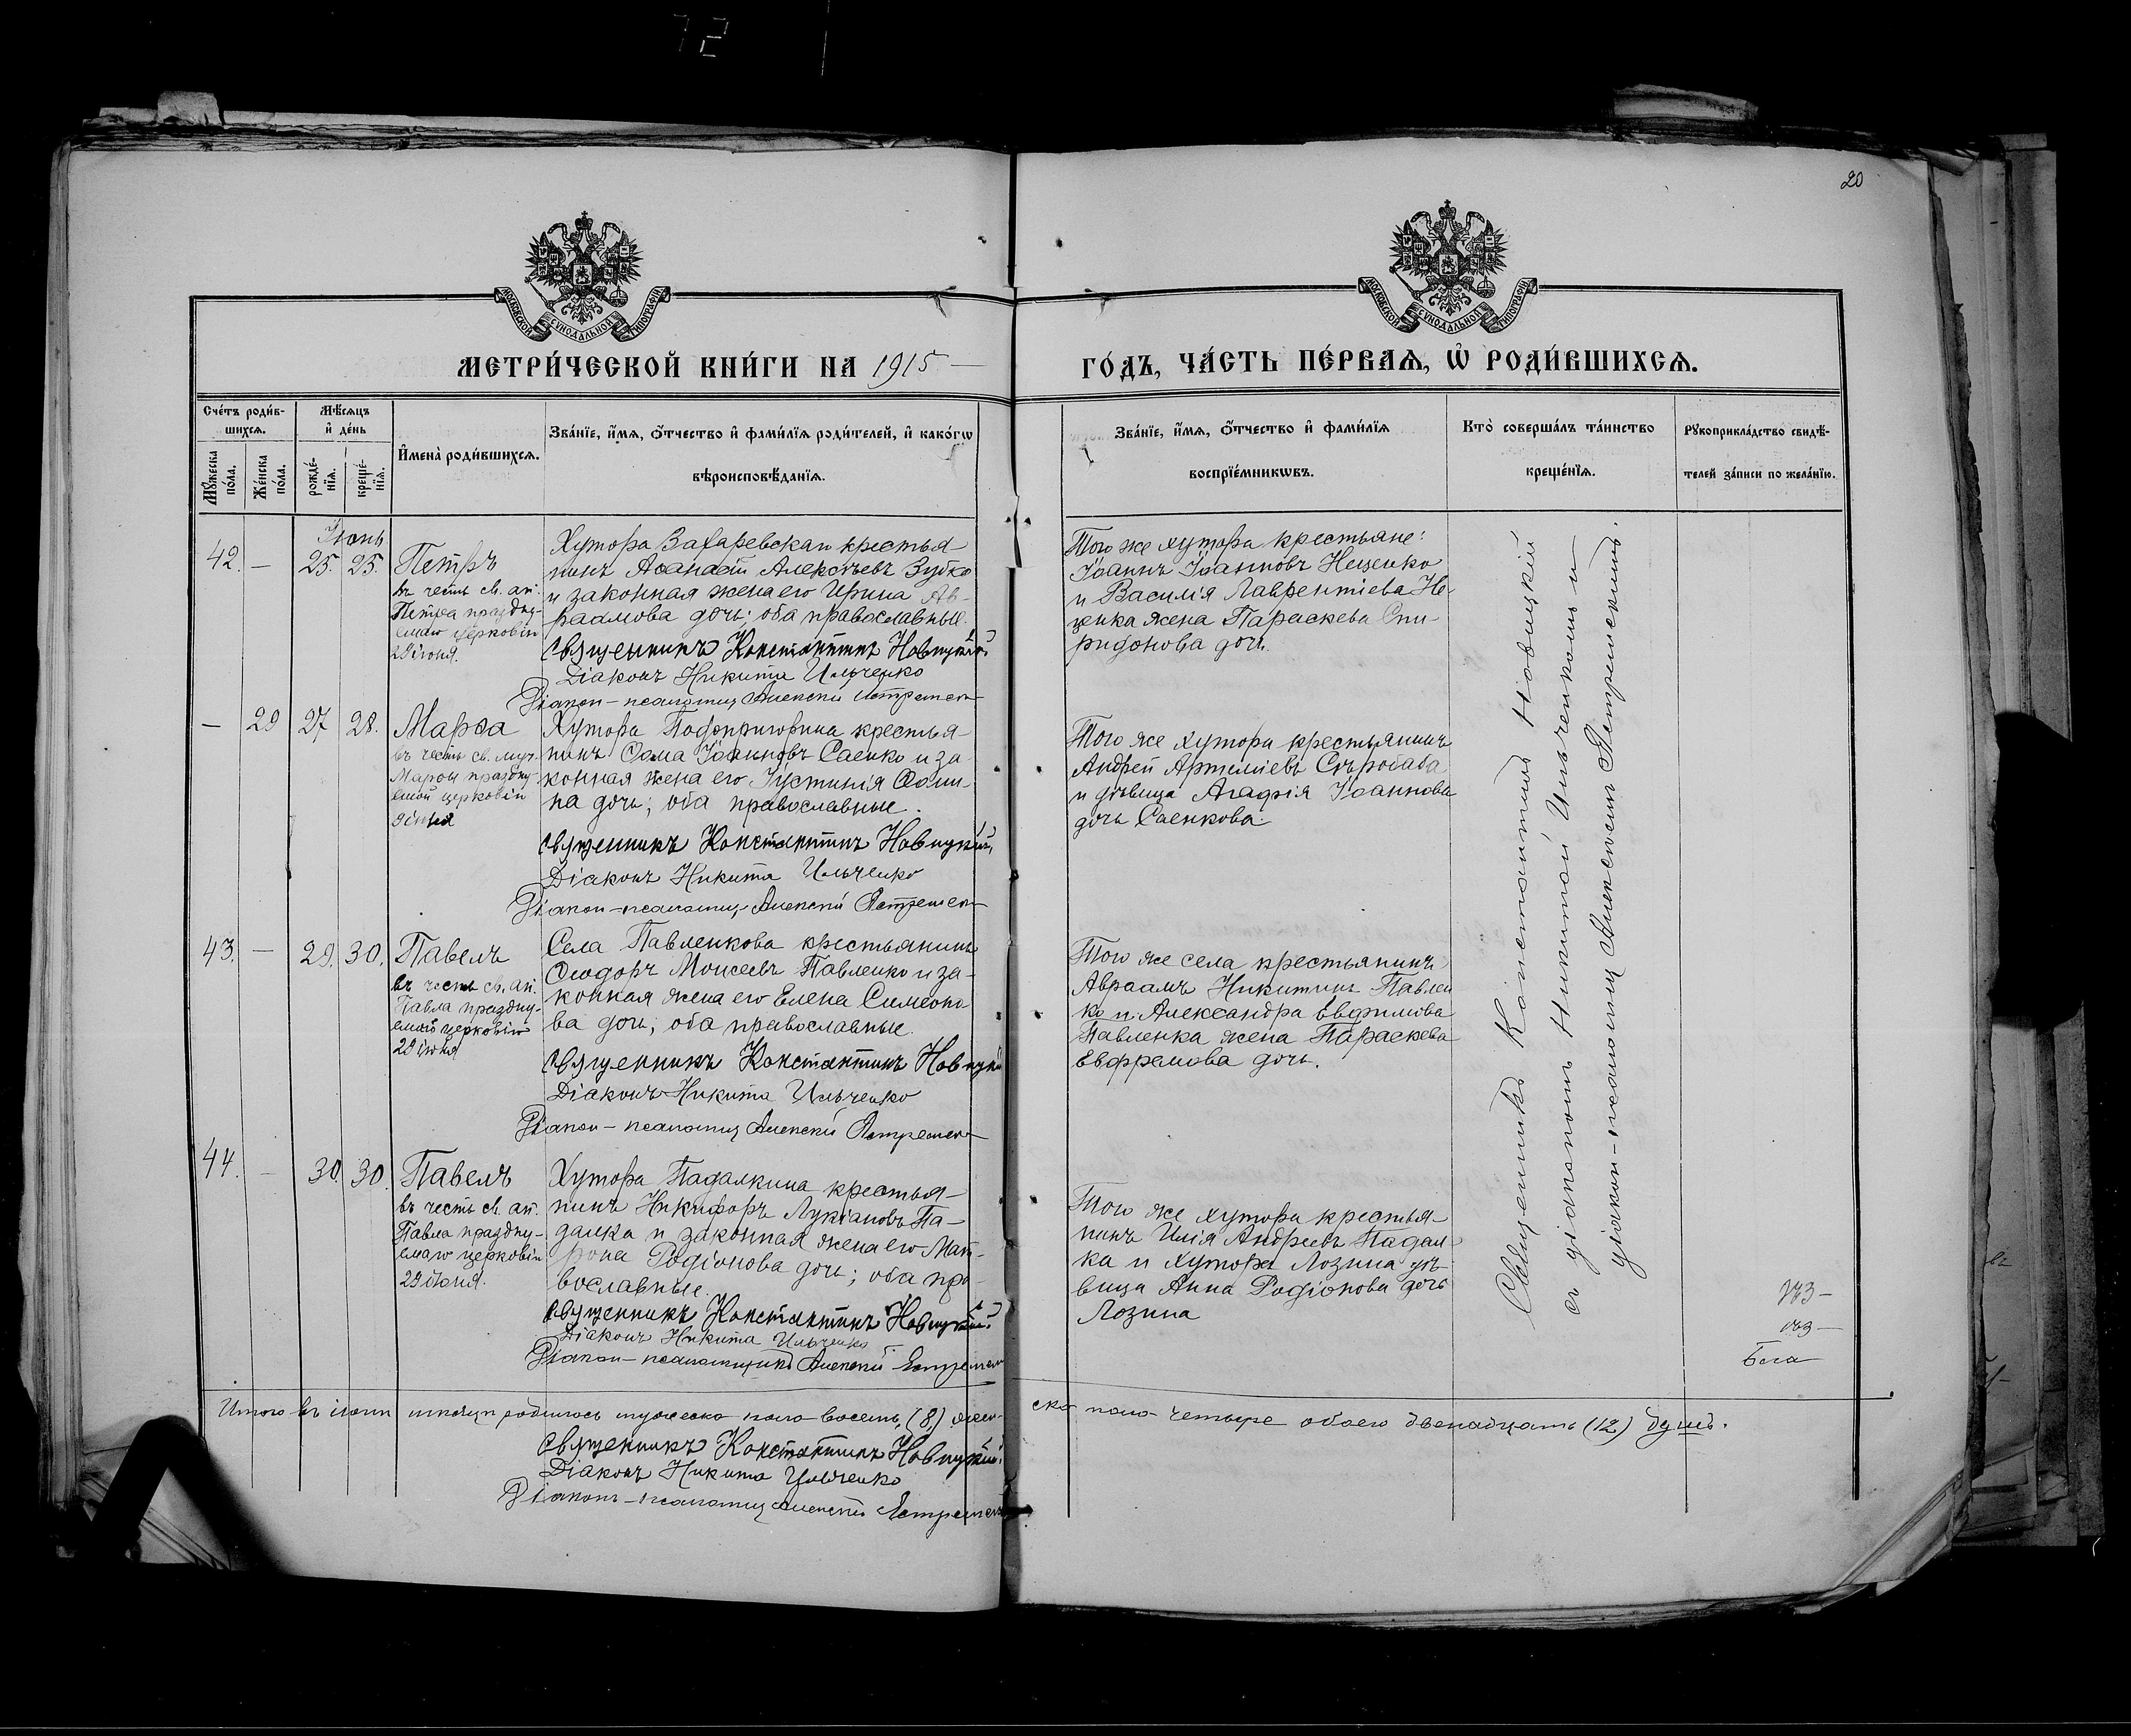 72
20
МОСКОВСКОЙ СѴНОДАЛЬНОЙ ТИПОГРАФІИ
МОСКОВСКОЙ СѴНОДАЛЬНОЙ ТИПОГРАФІИ
МЕТРИ́ЧЕСКОЙ КНИ́ГИ НА 1915
ГО́ДЪ, ЧА́СТЬ ПЕ́РВАѦ, Ѡ РОДИ́ВШИХСѦ.
Сче́тъ роди́в-
шихсѧ.
Мꙋ́жеска по́ла.
Же́нска по́ла.
Мѣ́сѧцъ
и҆ де́нь
рожде́-
нїѧ.
креще́-
нїѧ.
И҆мена̀ роди́вшихсѧ.
Зва́нїе, и҆́мѧ, о҆́тчество и҆ фами́лїѧ роди́телей, и҆ како́гѡ
вѣроисповѣ́данїѧ.
Зва́нїе, и҆́мѧ, о҆́тчество и҆ фами́лїѧ
воспрїе́мникѡвъ.
Кто̀ соверша́лъ та́инство
креще́нїѧ.
Рꙋкоприкла́дство свидѣ́-
телей за́писи по жела́нїю.
Іюнь
42. — 25. 25. Петръ
въ честь св. ап.
Петра праздну-
емаго церковію
29 іюня.
Хутора Захаревскаго крестья-
нинъ Алексѣевъ Зубко
и законная жена его Ирина Ав-
раамова дочь; оба православные.
Священникъ Константинъ Новицкій
Діаконъ Никита Ильченко
Діакон-псаломщ. Алексѣй
Того же хутора крестьяне:
Іоаннъ Іоанновъ Нещенко
и Василія Лаврентіева Не-
щенка жена Параскева Спи-
ридонова дочь.
— 29 27 28. Марѳа
въ честь св. муч.
Марѳы праздну-
емой церковію
9 іюня
Хутора Подопригорина крестья-
нинъ Ѳома Іоанновъ Саенко и за-
конная жена его Іустинія Ѳоми-
на дочь; оба православные.
Священникъ Константинъ Новицкій
Діаконъ Никита Ильченко
Діакон-псаломщ. Алексѣй
Того же хутора крестьянинъ
Андрей Артеміевъ Сѣробаба
и дѣвица Агафія Іоаннова
дочь Саенкова.
43. — 29. 30. Павелъ
въ честь св. ап.
Павла праздну-
емаго церковію
29 іюня
Села Павленкова крестьянинъ
Ѳеодоръ Моисеевъ Павленко и за-
конная жена его Елена Симеоно-
ва дочь; оба православные.
Священникъ Константинъ Новицкій
Діаконъ Никита Ильченко
Діакон-псаломщ. Алексѣй
Того же села крестьянинъ
Авраамъ Никитинъ Павлен-
ко и Александра Евфимова
Павленка жена Параскева
дочь.
44. — 30. 30. Павелъ
въ честь св. ап.
Павла праздну-
емаго церковію
29 іюня.
Хутора Падалкина крестья-
нинъ Никифоръ Лукіановъ Па-
далка и законная жена его Мат-
рона Родіонова дочь; оба пра-
вославные.
Священникъ Константинъ Новицкій
Діаконъ Никита Ильченко
Діакон-псаломщикъ Алексѣй
Того же хутора крестья-
нинъ Илія Андреевъ Падал-
ка и хутора Лозина дѣ-
вица Анна Родіонова дочь
Лозина
Священникъ Константинъ Новицкій
съ діакономъ Никитой Ильченкомъ и
діакон-псаломщ. Алексѣемъ
Итого въ іюнѣ мѣсяцѣ родилось мужеска пола восемь (8) жен-
ска пола четыре обоего двенадцать (12) душъ.
Священникъ Константинъ Новицкій
Діаконъ Никита Ильченко
Діаконъ-псаломщ. Алексѣй